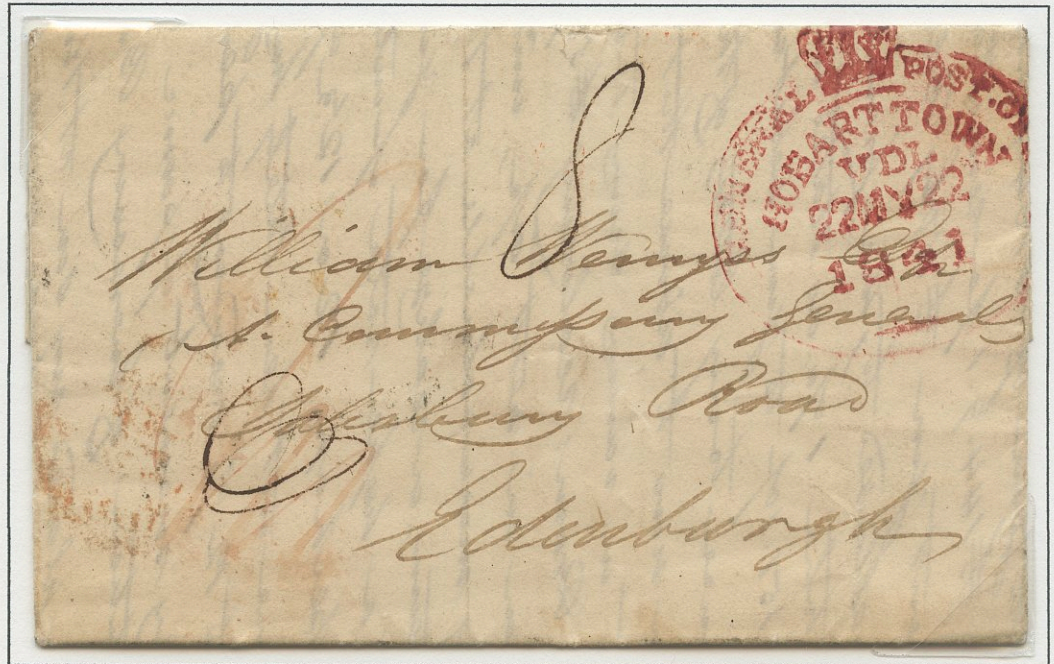 GENERAL POST.O
HOBART TOWN
VDL
22MY22
1841
8
William Wemyss Esqr
A. Commissary General
Salisbury Road
Edinburgh